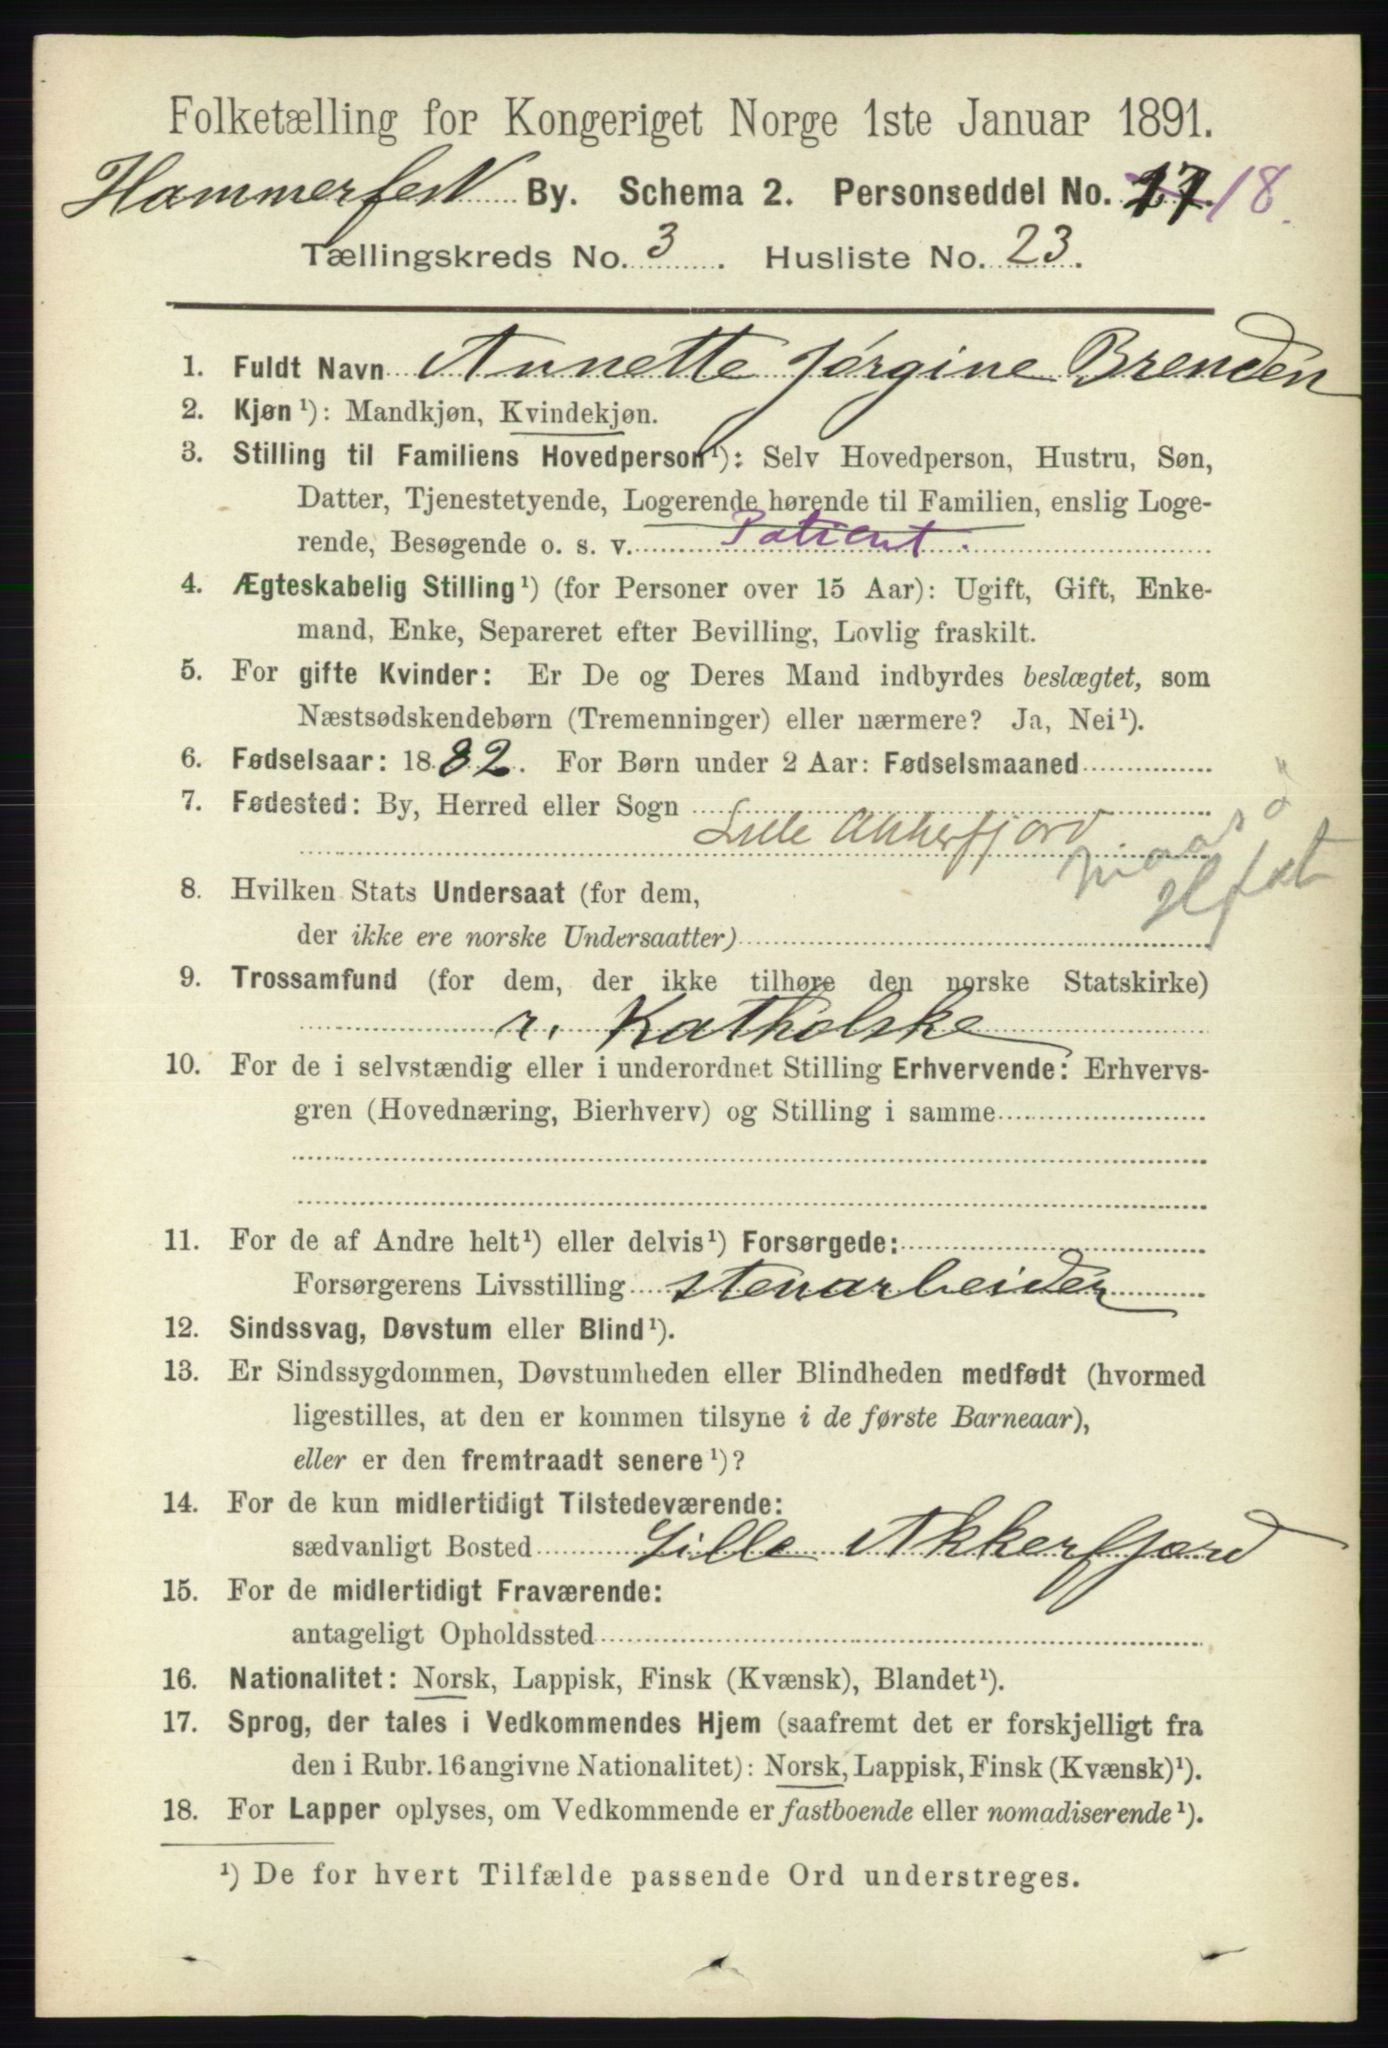 Folketælling for Kongeriget Norge 1ste Januar 1891.
Hammerfest By. Schema 2. Personseddel No. 17 18.
Tællingskreds No. 3. Husliste No. 23.
1. Fuldt Navn Annette Jørgine Brenden
2. Kjøn¹): Mandkjøn, Kvindekjøn.
3. Stilling til Familiens Hovedperson¹): Selv Hovedperson, Hustru, Søn,
Datter, Tjenestetyende, Logerende hørende til Familien, enslig Loge-
rende, Besøgende o. s. v. Patient.
4. Ægteskabelig Stilling¹) (for Personer over 15 Aar): Ugift, Gift, Enke-
mand, Enke, Separeret efter Bevilling, Lovlig fraskilt.
5. For gifte Kvinder: Er De og Deres Mand indbyrdes beslægtet, som
Næstsødskendebørn (Tremenninger) eller nærmere? Ja, Nei¹).
6. Fødselsaar: 1882. For Børn under 2 Aar: Fødselsmaaned
7. Fødested: By, Herred eller Sogn
Lille Akkerfjord. Maasø
Hfest
8. Hvilken Stats Undersaat (for dem,
der ikke ere norske Undersaatter)
9. Trossamfund (for dem, der ikke tilhøre den norske Statskirke)
r. Katholske
10. For de i selvstændig eller i underordnet Stilling Erhvervende: Erhvervs-
gren (Hovednæring, Bierhverv) og Stilling i samme
11. For de af Andre helt¹) eller delvis¹) Forsørgede:
Forsørgerens Livsstilling stenarbeider
12. Sindssvag, Døvstum eller Blind¹).
13. Er Sindssygdommen, Døvstumheden eller Blindheden medfødt (hvormed
ligestilles, at den er kommen tilsyne i de første Barneaar),
eller er den fremtraadt senere¹)?
14. For de kun midlertidigt Tilstedeværende:
sædvanligt Bosted Lille Akkerfjord
15. For de midlertidigt Fraværende:
antageligt Opholdssted
16. Nationalitet: Norsk, Lappisk, Finsk (Kvænsk), Blandet¹).
17. Sprog, der tales i Vedkommendes Hjem (saafremt det er forskjelligt fra
den i Rubr. 16 angivne Nationalitet): Norsk, Lappisk, Finsk (Kvænsk)¹).
18. For Lapper oplyses, om Vedkommende er fastboende eller nomadiserende¹).
¹) De for hvert Tilfælde passende Ord understreges.